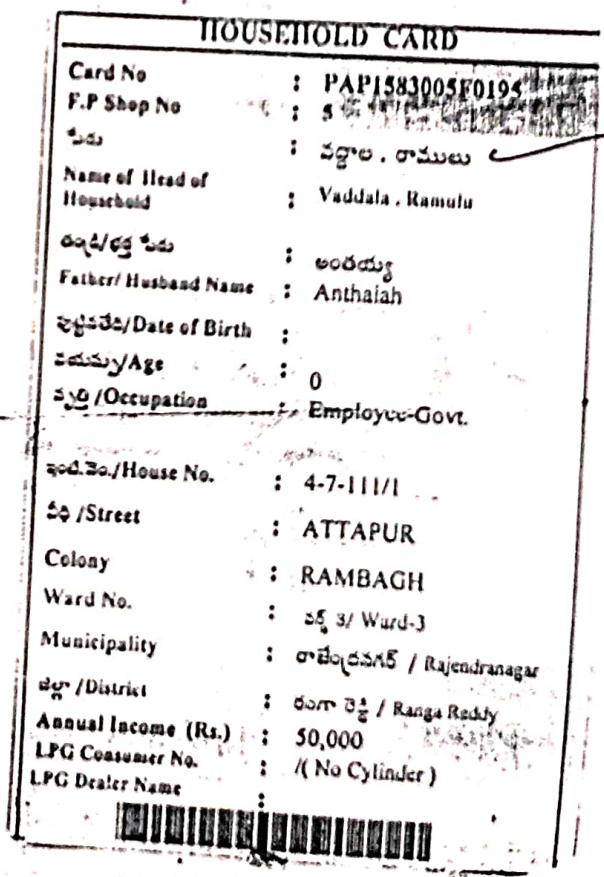 HOUSEHOLD CARD
Card No : PAP1583005F0195
F.P Shop No : 5
పేరు : వద్దాల , రాములు
Name of Head of Household : Vaddala , Ramulu
తండ్రి/భర్త పేరు : అంతయ్య
Father/ Husband Name : Anthaiah
పుట్టినతేది/Date of Birth :
వయస్సు/Age : 0
వృత్తి /Occupation : Employee-Govt.
ఇంటి.నెం./House No. : 4-7-111/1
వీధి /Street : ATTAPUR
Colony : RAMBAGH
Ward No. : వార్డ్ 3/ Ward-3
Municipality : రాజేంద్రనగర్ / Rajendranagar
జిల్లా /District : రంగా రెడ్డి / Ranga Reddy
Annual Income (Rs.) : 50,000
LPG Consumer No. : /( No Cylinder )
LPG Dealer Name :